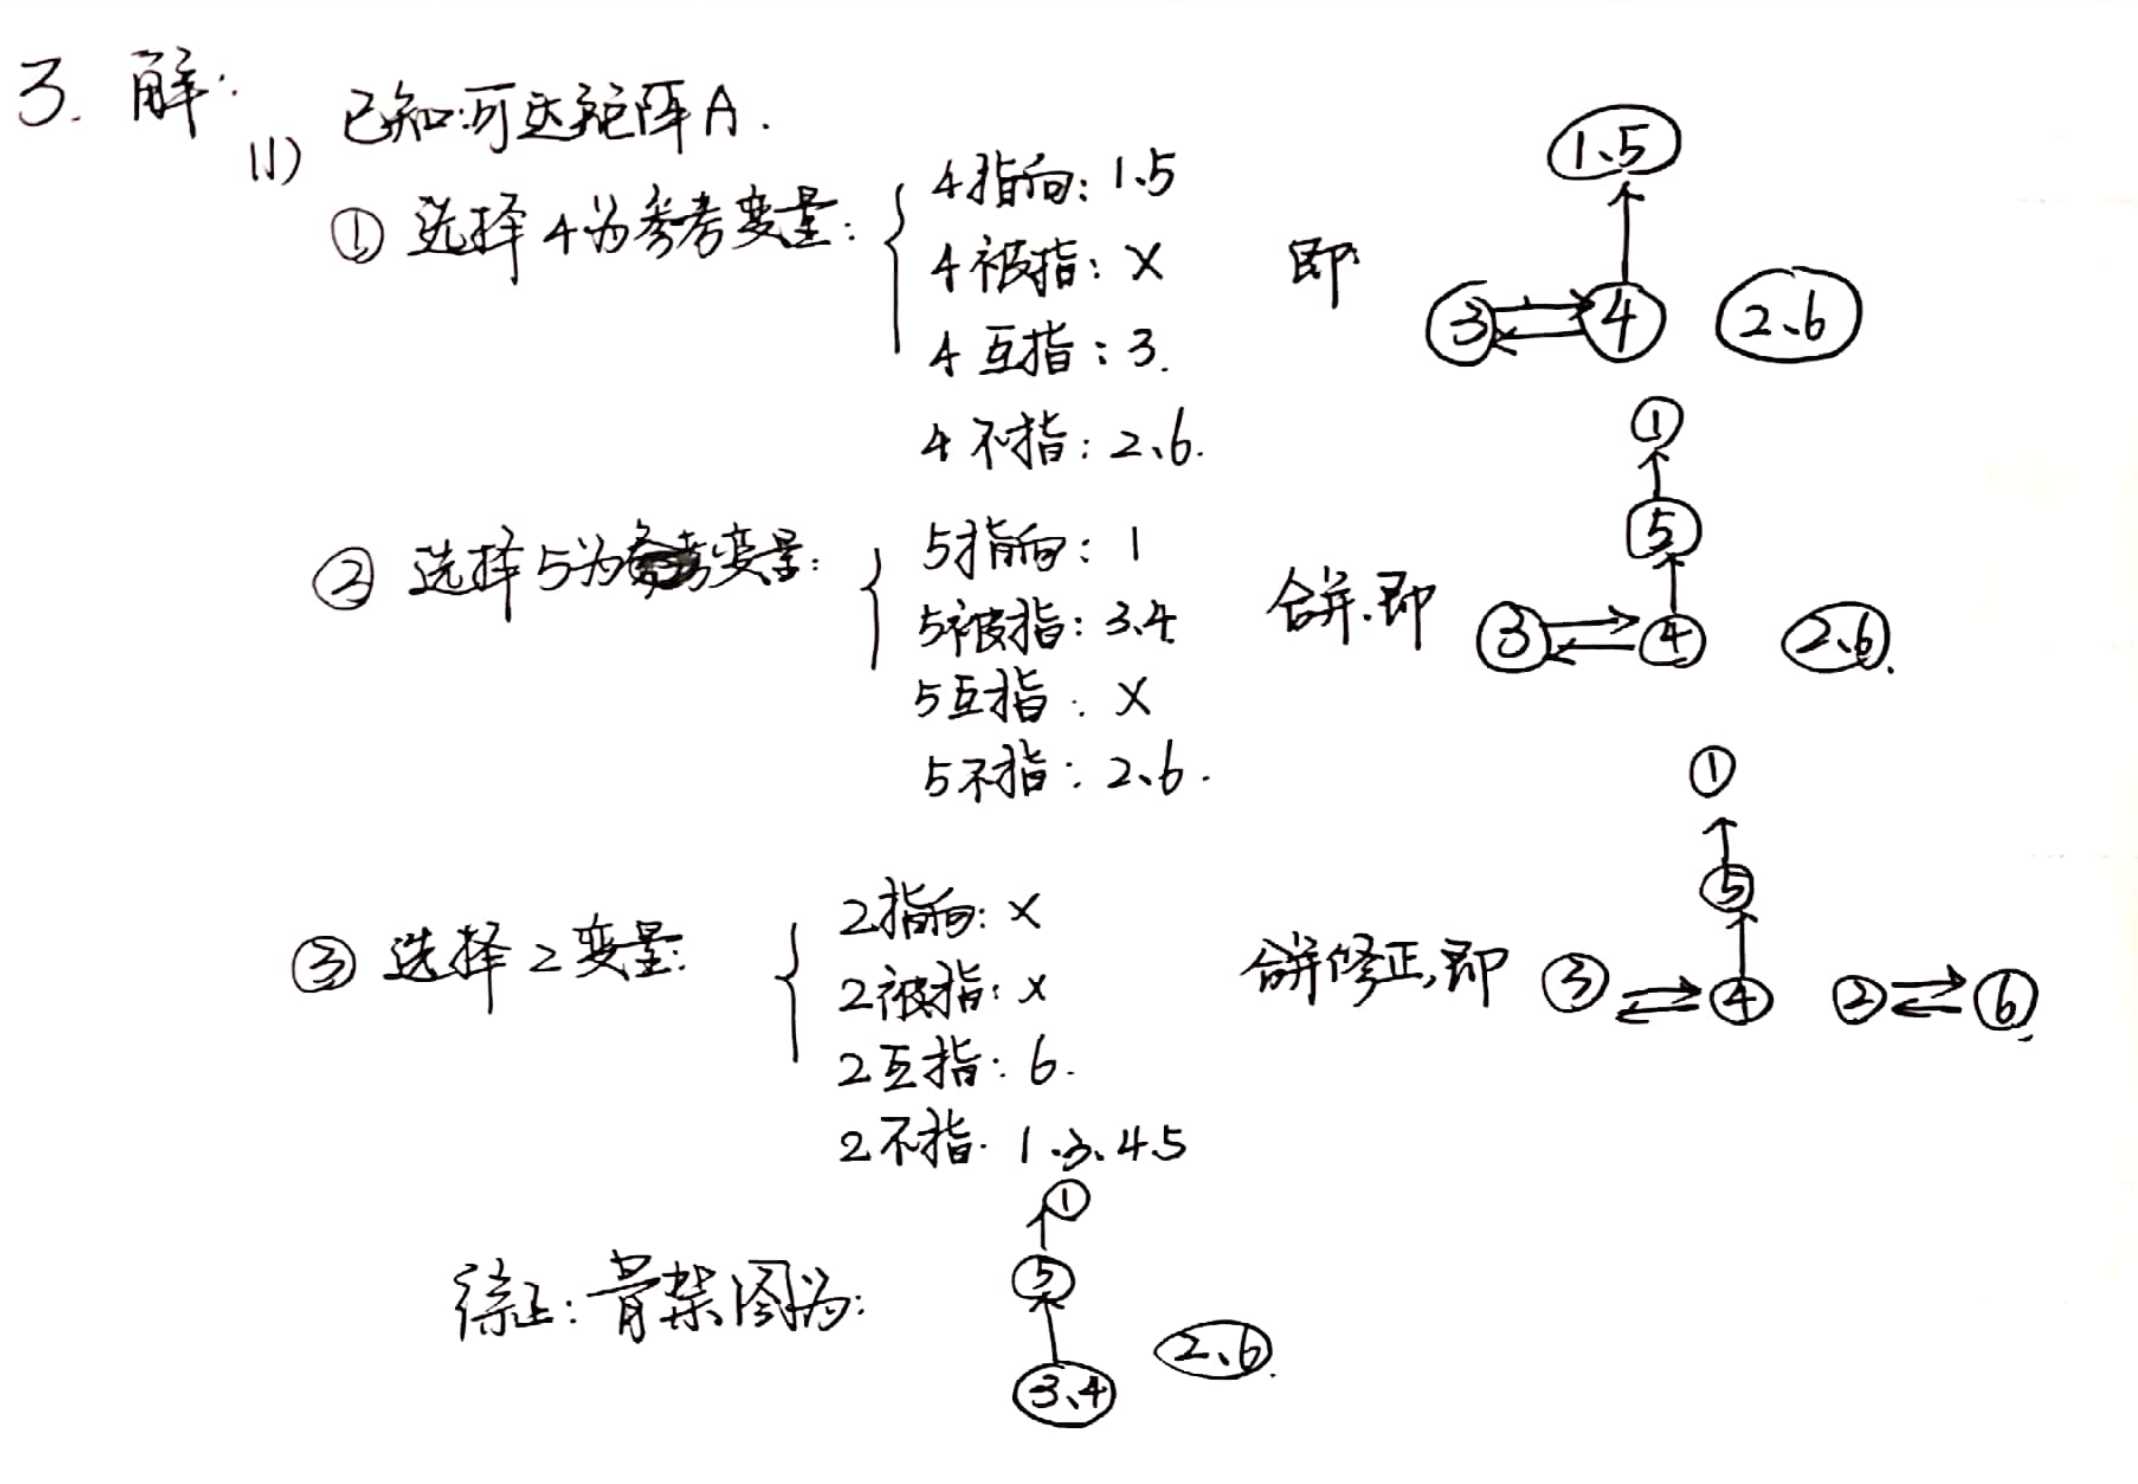 3. 解:
(1) 已知:可达矩阵A.
① 选择4为参考变量:
4指向: 1、5
4被指: ×
4互指: 3.
4不指: 2、6.
即
1、5
3 4 2、6
② 选择5为参考变量:
5指向: 1
5被指: 3、4
5互指: ×
5不指: 2、6.
合并.即
1
5
3 4 2、6.
③ 选择2变量:
2指向: ×
2被指: ×
2互指: 6.
2不指. 1、3、4、5
合并修正,即
1
5
3 4 2 6
综上: 骨架图为:
1
5
3、4 2、6.